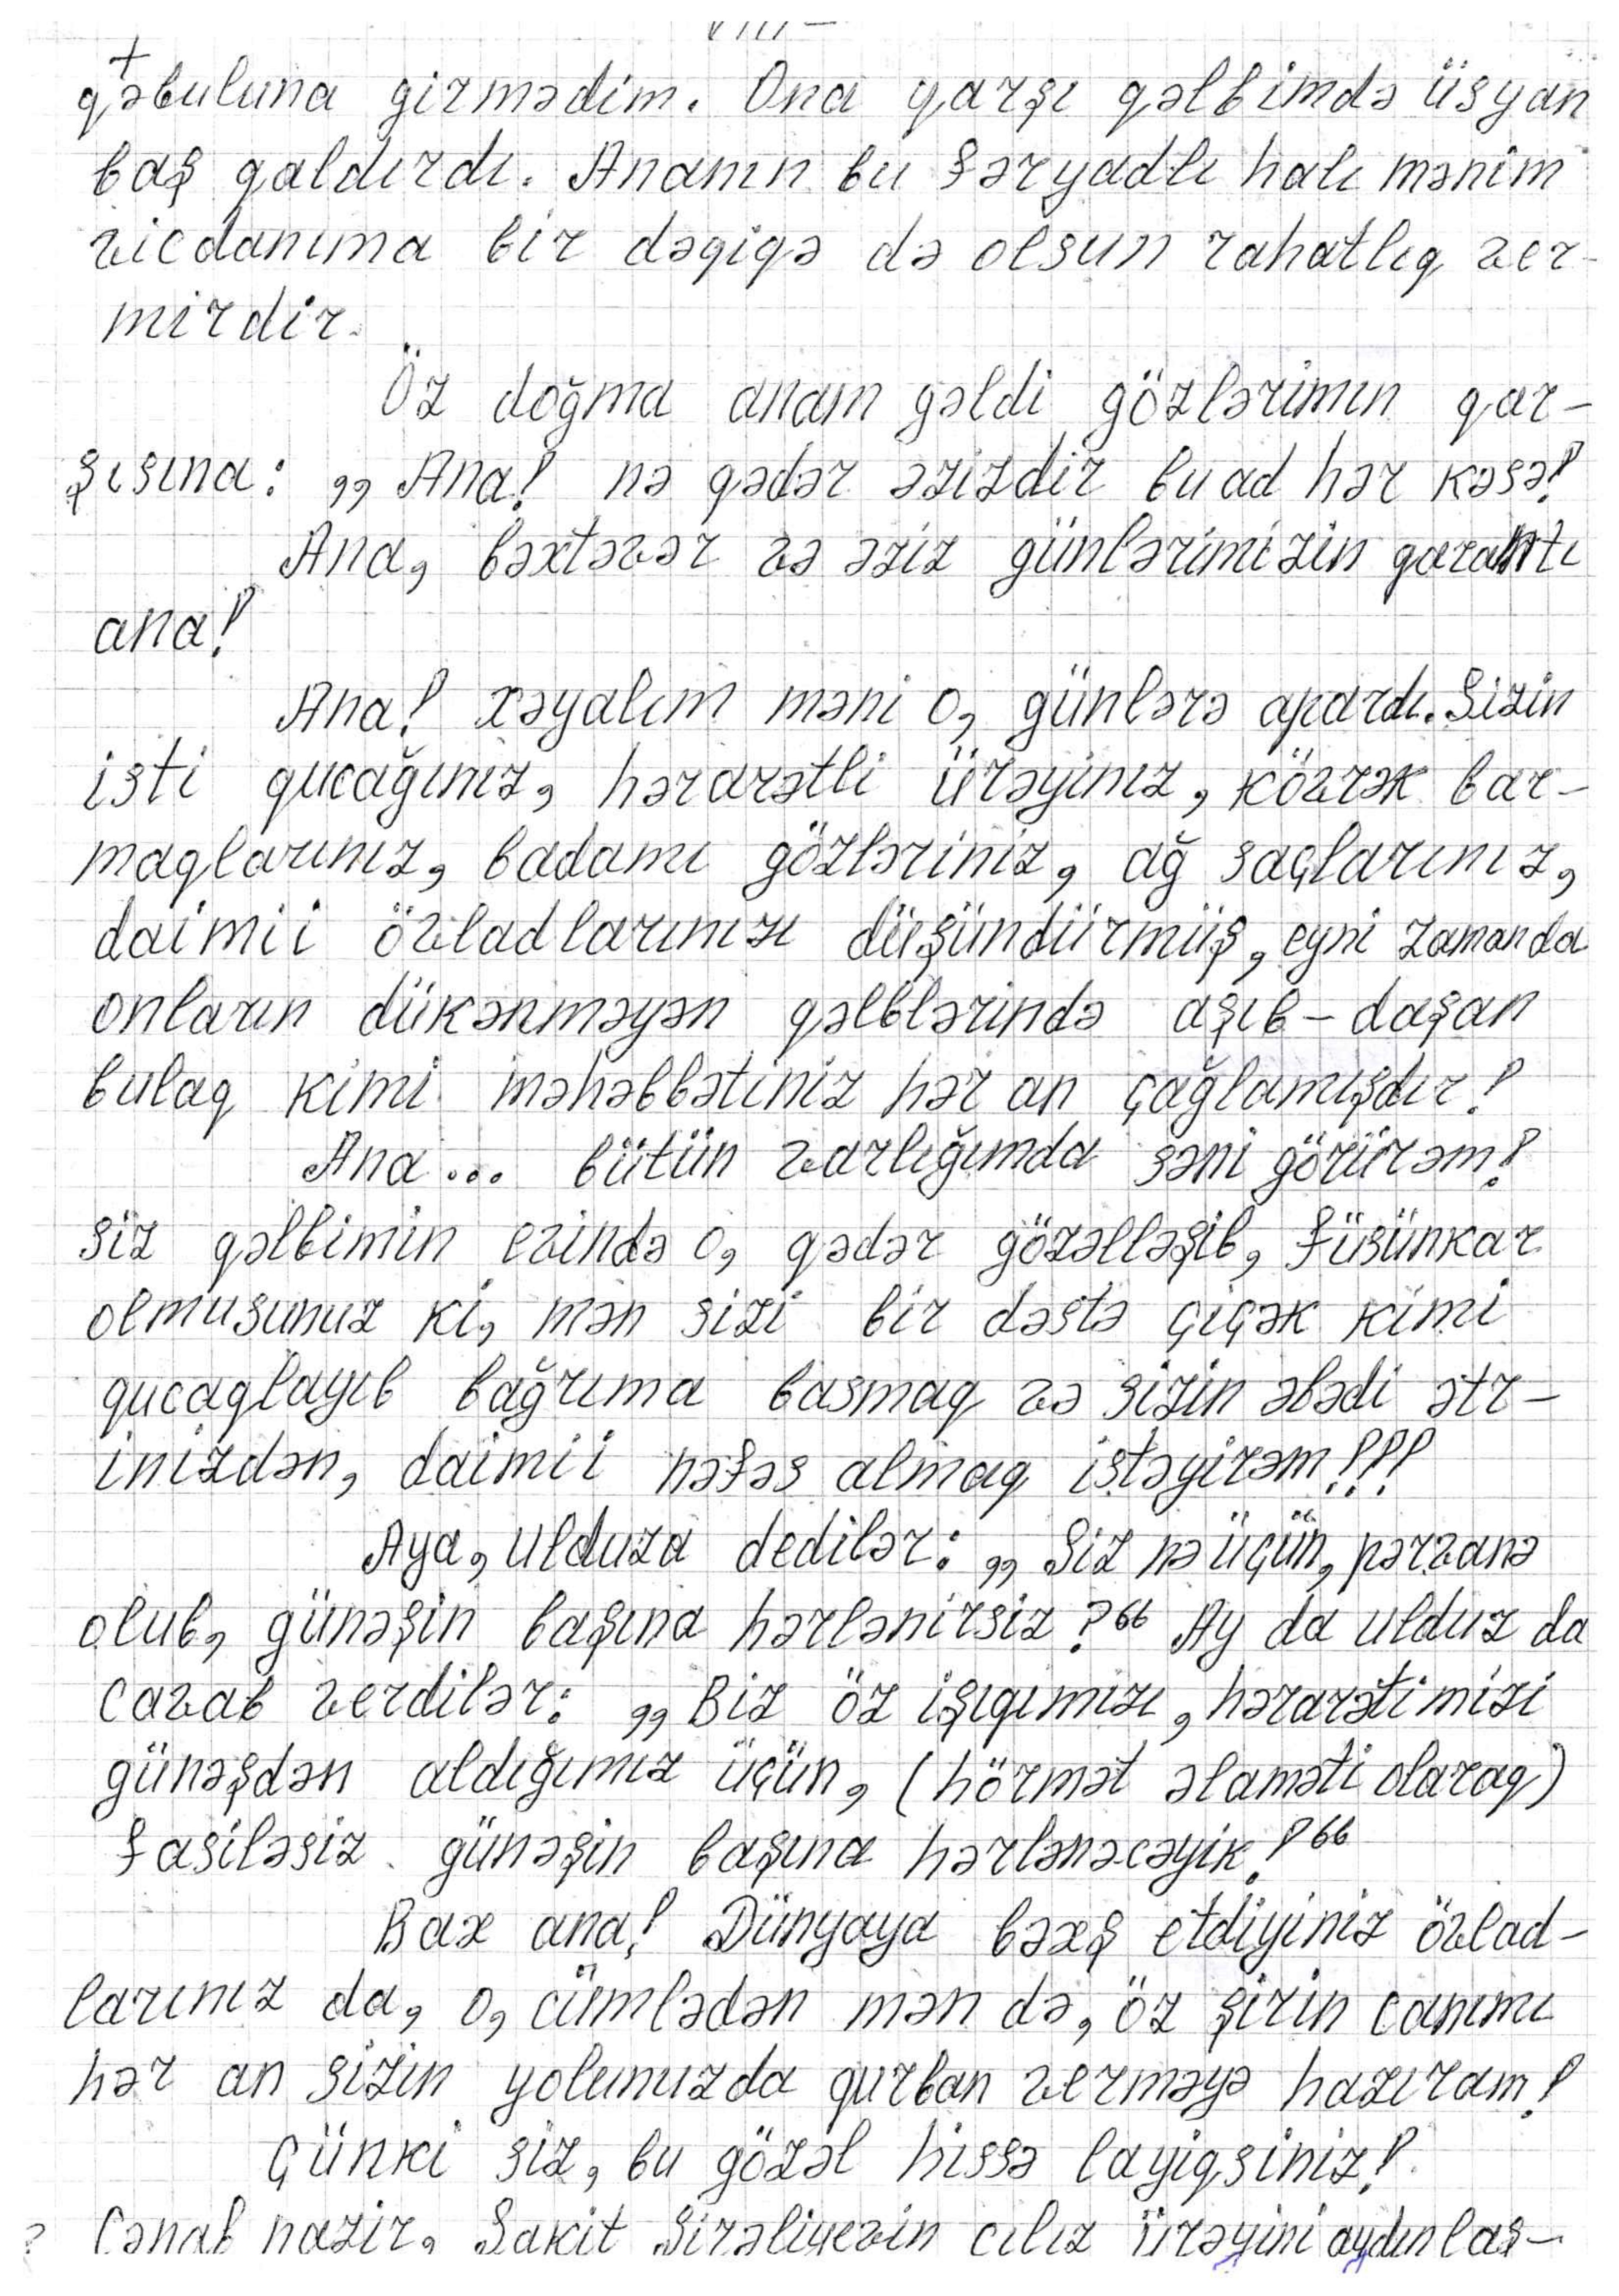 VIII –
qəbuluna girmədim. Ona qarşı qəlbimdə üsyan
baş qaldırdı. Ananın bu fəryadlı halı mənim
vicdanıma bir dəqiqə də olsun rahatlıq ver-
mirdir.
Öz doğma anam gəldi gözlərimin qar-
şısına: „Ana! nə qədər əzizdir bu ad hər kəsə!
Ana, bəxtəvər və əziz günlərimizin qarantı
ana!
Ana! xəyalım məni o, günlərə apardı. Sizin
isti qucağınız, hərarətli ürəyiniz, kövrək bar-
maqlarınız, badamı gözləriniz, ağ saçlarınız,
daimii övladlarınızı düşündürmüş, eyni zamanda
onların dükənməyən qəlblərində aşıb-daşan
bulaq kimi məhəbbətiniz hər an çağlamışdır!
Ana... bütün varlığımda səni görürəm!
siz qəlbimin evində o, qədər gözəlləşib, füsünkar
olmusunuz ki, mən sizi bir dəstə çiçək kimi
qucaqlayıb bağrıma basmaq və sizin əbədi ətr-
inizdən, daimii nəfəs almaq istəyirəm!!!
Aya, ulduza dedilər: „Siz nə üçün, pərvanə
olub, günəşin başına hərlənirsiz?“ Ay da ulduz da
cavab verdilər: „Biz öz işıqımızı, hərarətimizi
günəşdən aldığımız üçün, (hörmət əlaməti olaraq)
fasiləsiz günəşin başına hərlənəcəyik!“
Bax ana! Dünyaya bəxş etdiyiniz övlad-
larınız da, o, cümlədən mən də, öz şirin canımı
hər an sizin yolunuzda qurban verməyə hazıram!
Çünki siz, bu gözəl hissə layiqsiniz!
? Cənab nazir. Sakit Şirəliyevin cılız ürəyini aydınlaş-